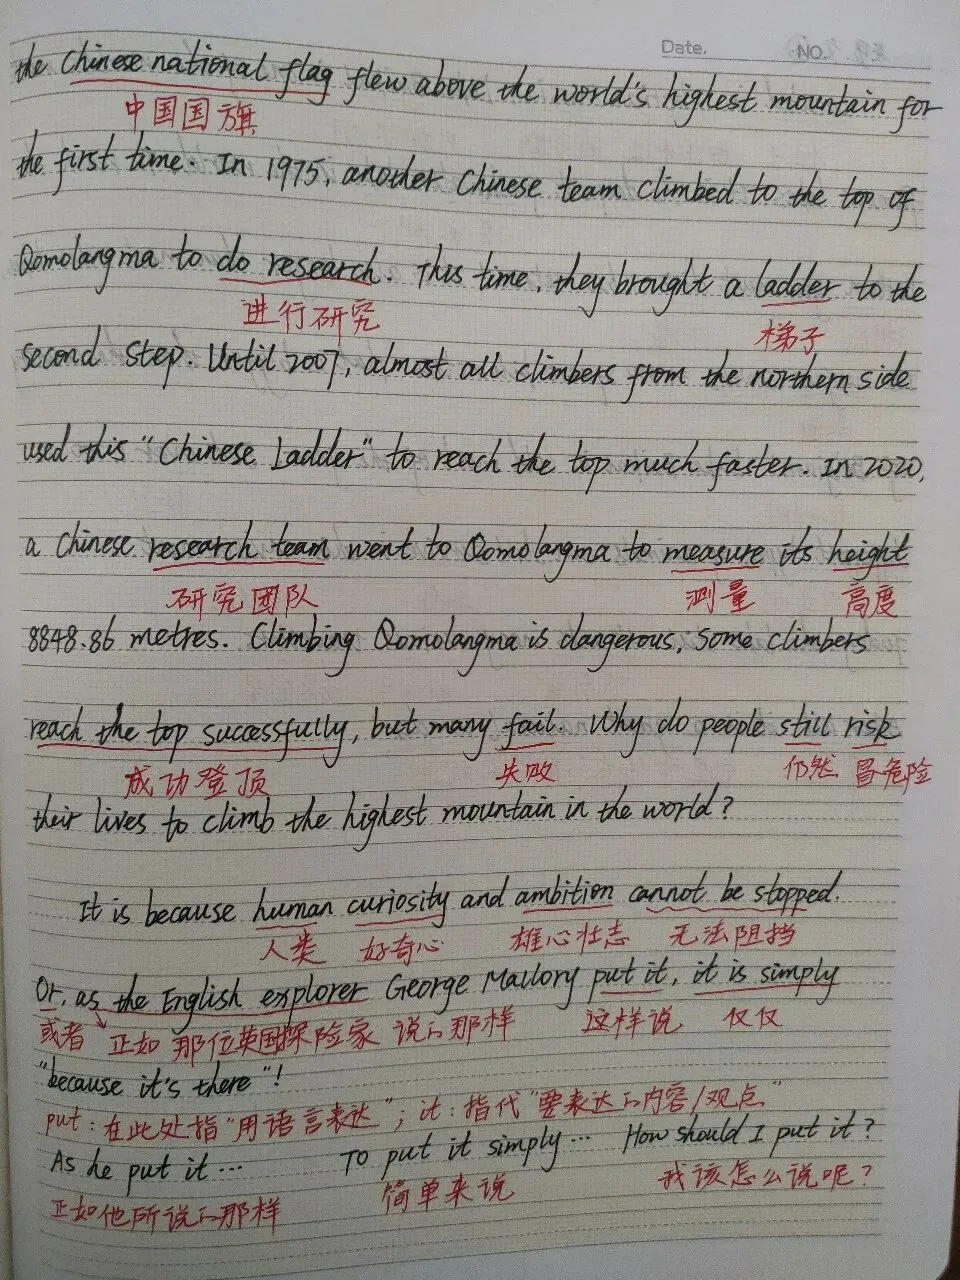 Date. NO.
the Chinese national flag flew above the world's highest mountain for
中国国旗
the first time. In 1975, another Chinese team climbed to the top of
Qomolangma to do research. This time, they brought a ladder to the
进行研究 梯子
second step. Until 2007, almost all climbers from the northern side
used this "Chinese Ladder" to reach the top much faster. In 2020,
a Chinese research team went to Qomolangma to measure its height
研究团队 测量 高度
8848.86 metres. Climbing Qomolangma is dangerous. Some climbers
reach the top successfully, but many fail. Why do people still risk
成功登顶 失败 仍然 冒危险
their lives to climb the highest mountain in the world?
It is because human curiosity and ambition cannot be stopped.
人类 好奇心 雄心壮志 无法阻挡
Or, as the English explorer George Mallory put it, it is simply
或者 正如 那位英国探险家 说的那样 这样说 仅仅
"because it's there"!
put: 在此处指"用语言表达"; it: 指代"要表达的内容/观点"
As he put it ... To put it simply ... How should I put it?
正如他所说的那样 简单来说 我该怎么说呢?